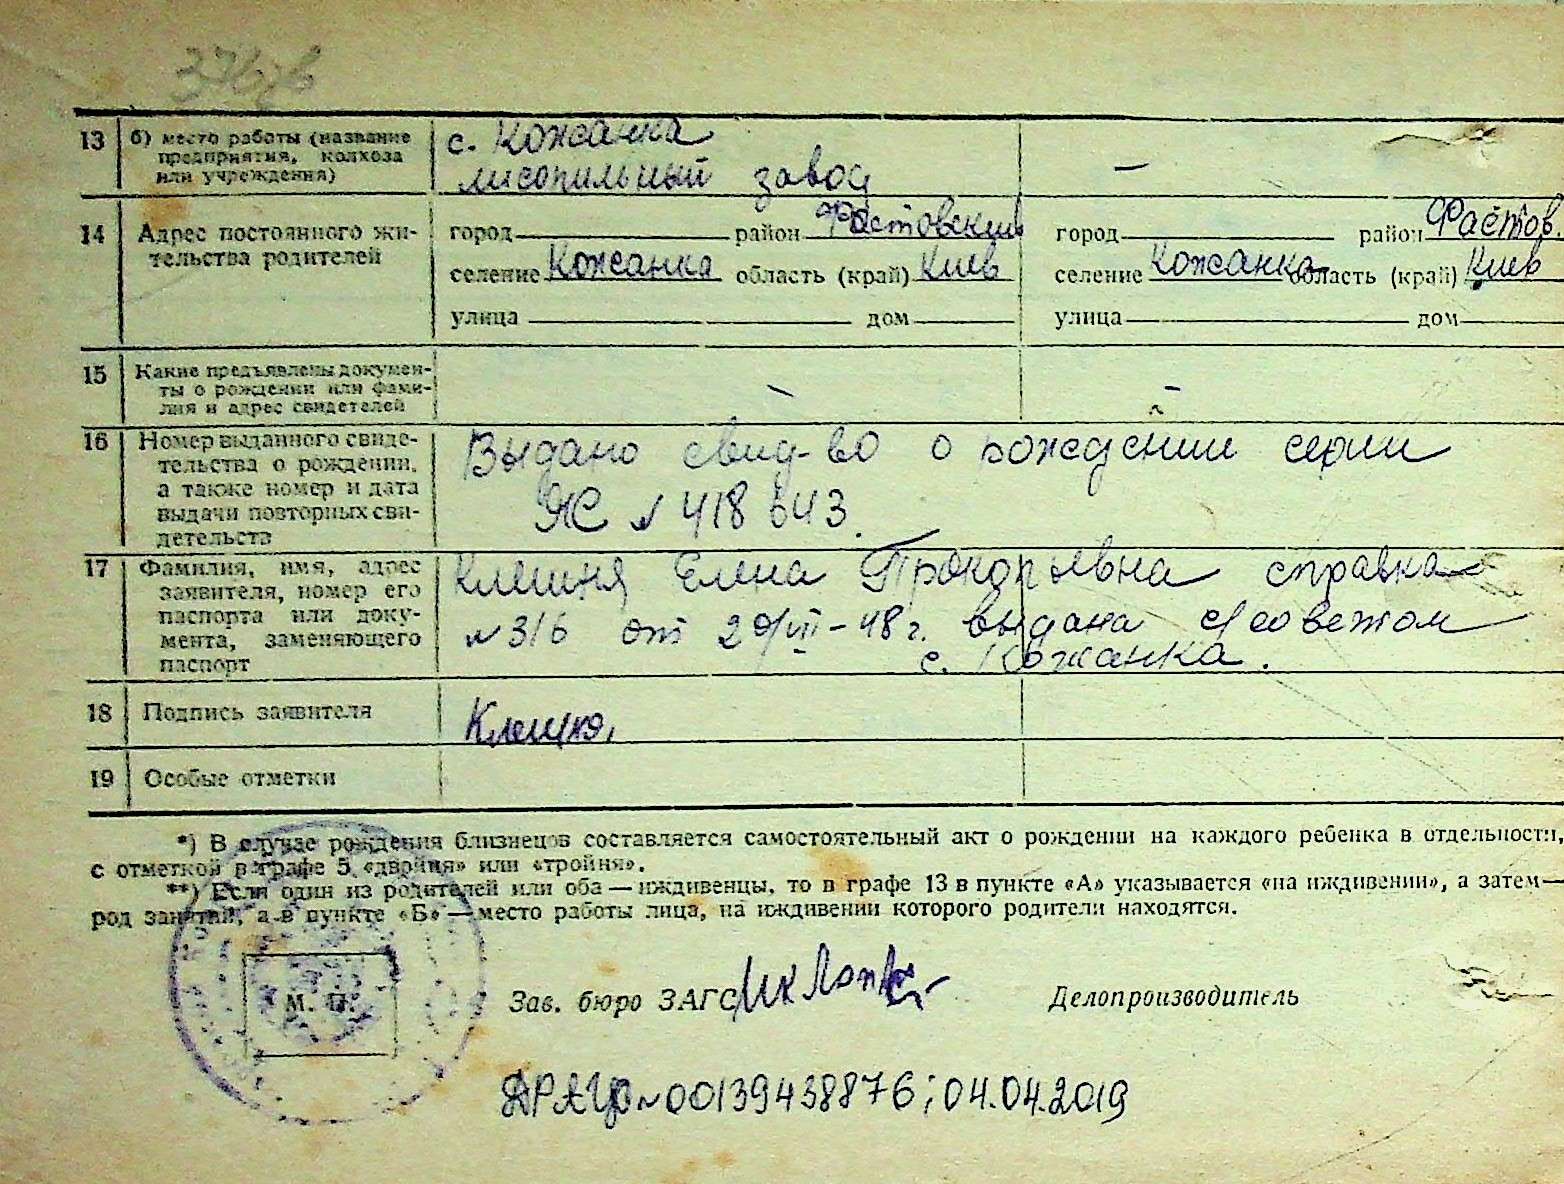 13 б) место работы (название предприятия, колхоза или учреждения)
с. Кожанка
лисопильный завод
—
14 Адрес постоянного жительства родителей
город район Фастовский
селение Кожанка область (край) Киев
улица дом
город район Фастов.
селение Кожанка область (край) Киев
улица дом
15 Какие предъявлены документы о рождении или фамилия и адрес свидетелей
– –
16 Номер выданного свидетельства о рождении, а также номер и дата выдачи повторных свидетельств
Выдано свид-во о рождении серии
ЯС № 418643.
17 Фамилия, имя, адрес заявителя, номер его паспорта или документа, заменяющего паспорт
Клешня Елена Прокопьевна справка
№ 316 от 29/VII-48 г. выдана с/советом
с. Кожанка.
18 Подпись заявителя
19 Особые отметки
*) В случае рождения близнецов составляется самостоятельный акт о рождении на каждого ребенка в отдельности,
с отметкой в графе 5 «двойня» или «тройня».
**) Если один из родителей или оба — иждивенцы, то в графе 13 в пункте «А» указывается «на иждивении», а затем —
род занятий, а в пункте «Б» — место работы лица, на иждивении которого родители находятся.
М. П.
Зав. бюро ЗАГС
Делопроизводитель
ДРАЦС № 00139438876; 04.04.2019